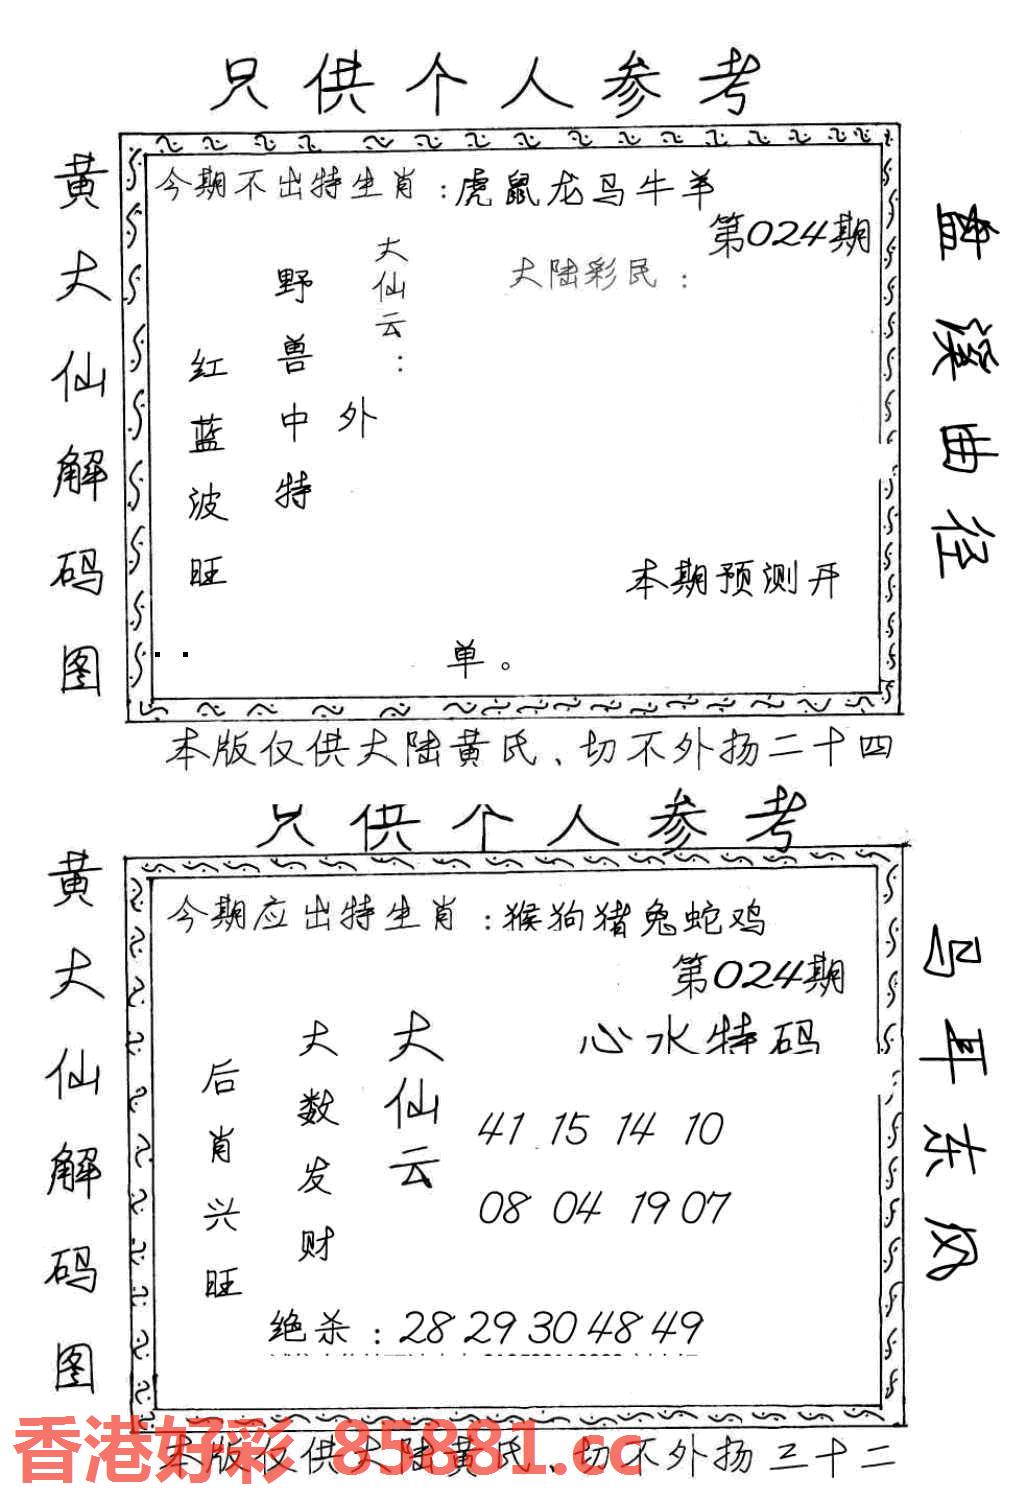 只供个人参考
黄大仙解码图
今期不出特生肖：虎鼠龙马牛羊
第024期
大仙云：
大陆彩民：
野兽中特
外
红蓝波旺
本期预测开
单。
盘溪曲径
本版仅供大陆黄氏、切不外扬二十四
只供个人参考
黄大仙解码图
今期应出特生肖：猴狗猪兔蛇鸡
第024期
心水特码
大仙云
大数发财
后肖兴旺
41 15 14 10
08 04 19 07
绝杀：28 29 30 48 49
马耳东风
本版仅供大陆黄氏、切不外扬三十二
香港好彩 85881.cc